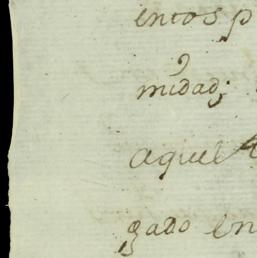 entos p
midad;
aquel
gado en